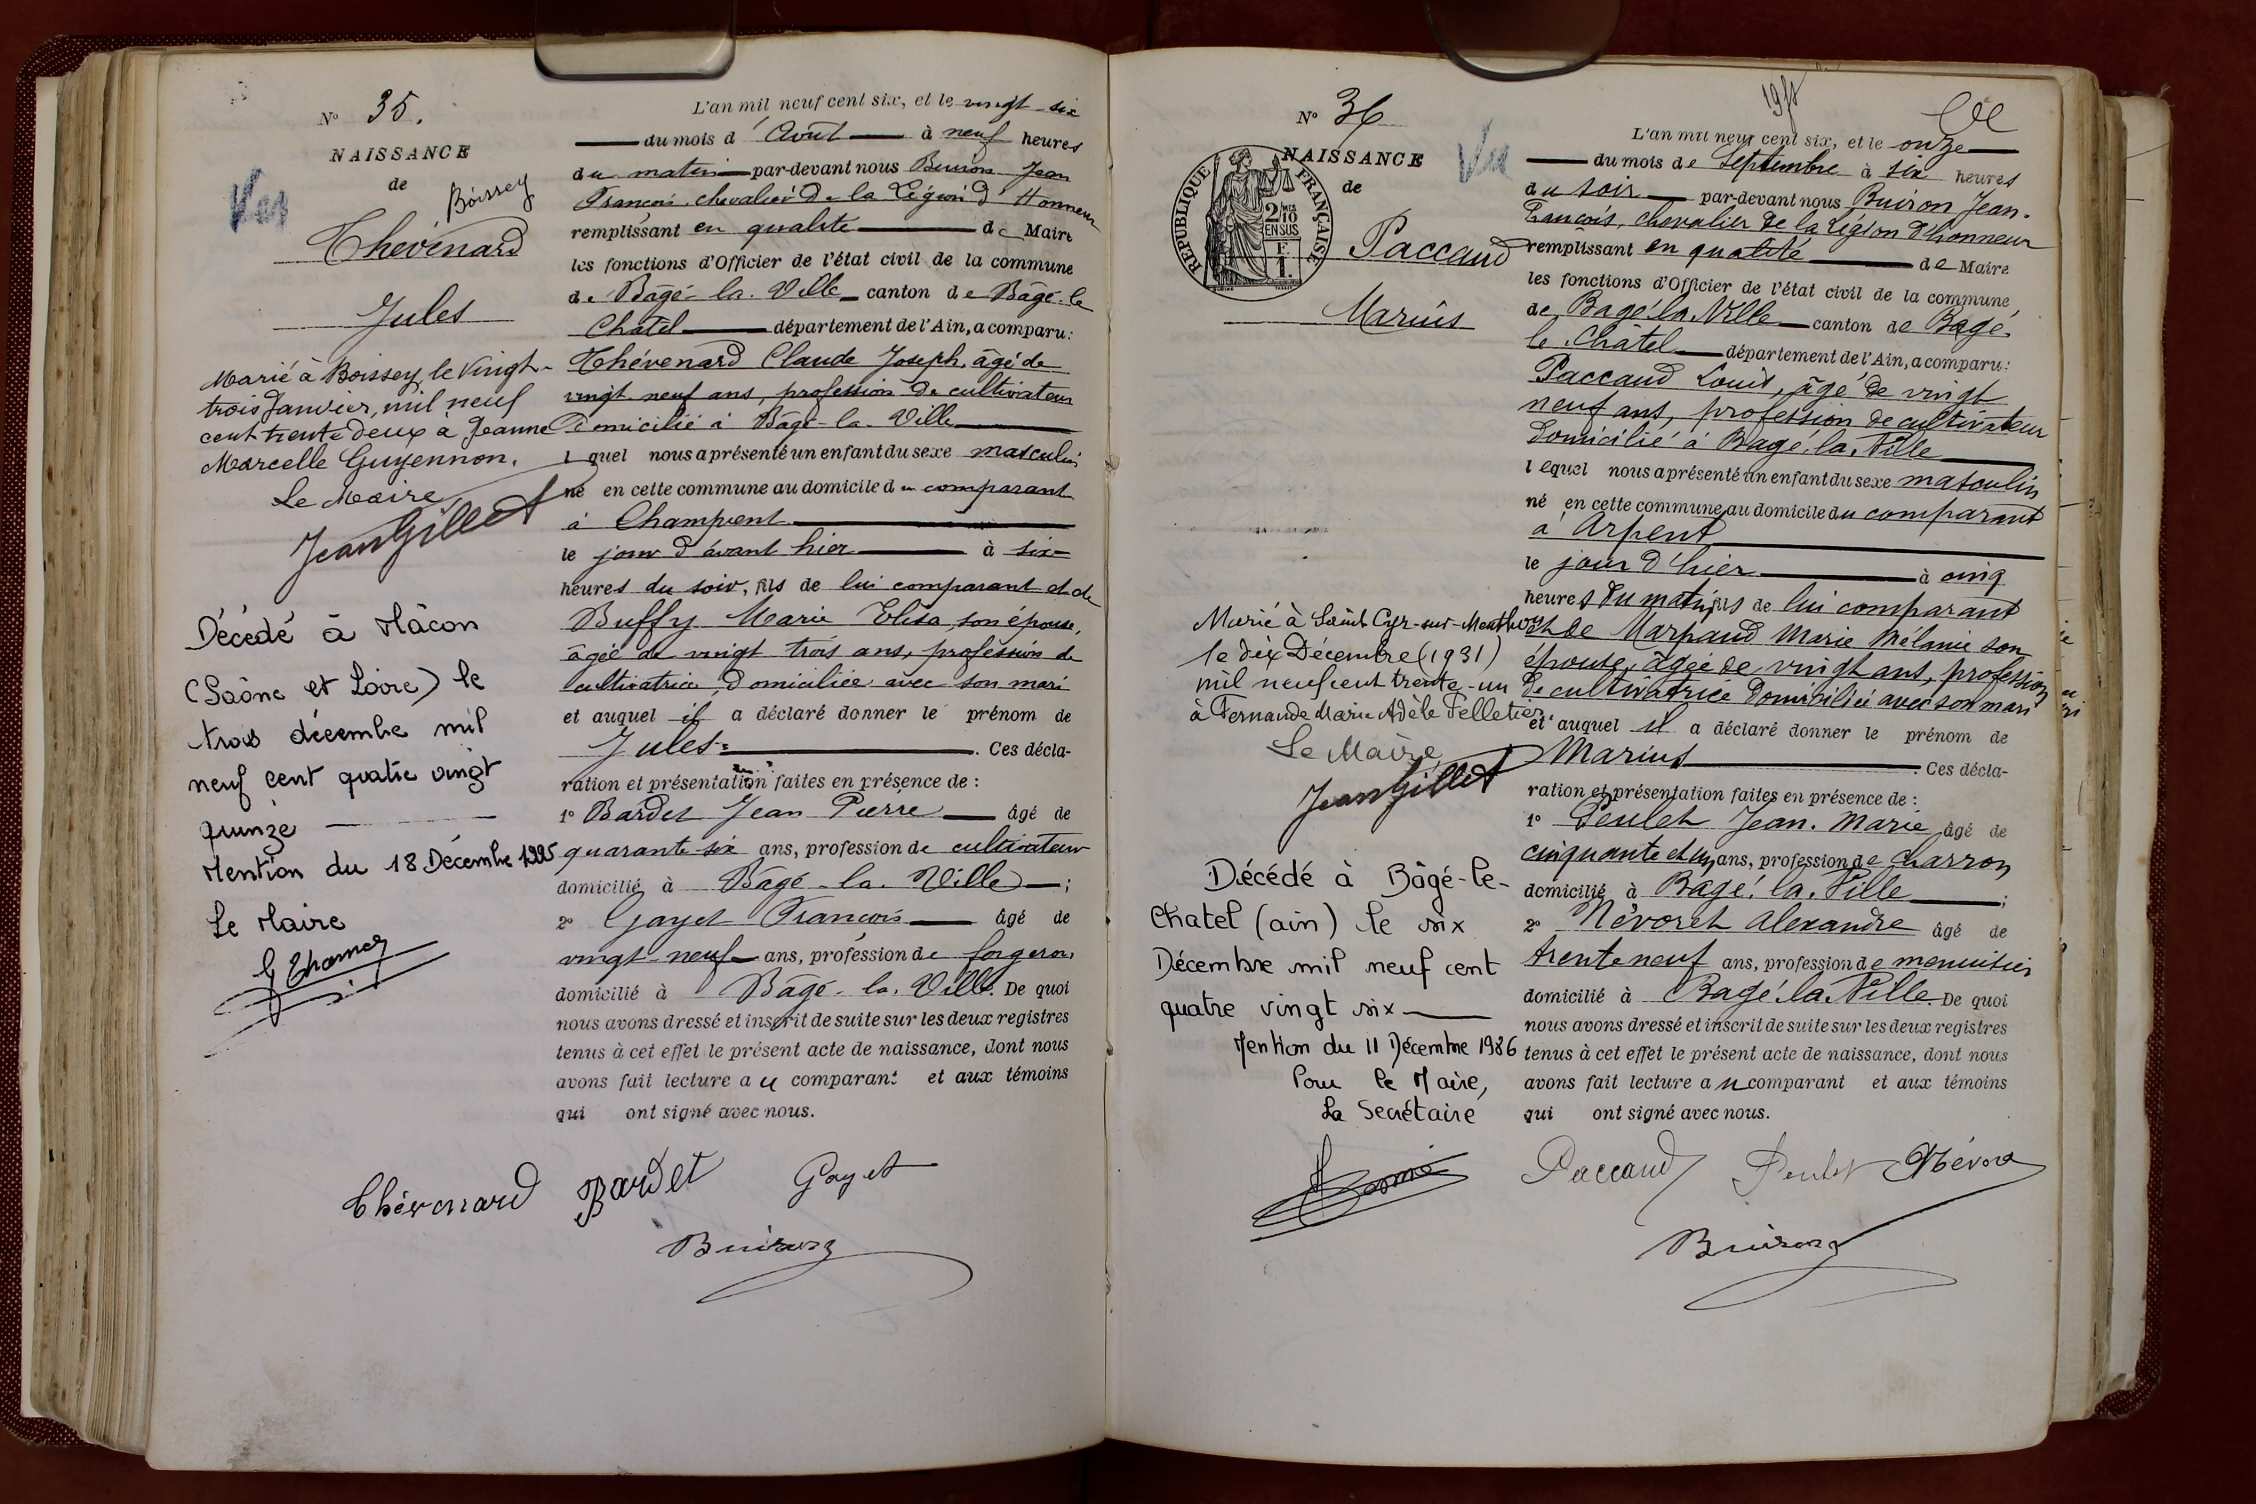 N° 35.
NAISSANCE
de
Boissey
Thévenard
Jules
Vu
Marié à Boissey, le vingt-
trois Janvier, mil neuf
cent trente deux à Jeanne
Marcelle Guyennon.
Le Maire
Jean Gillet
Décédé à Mâcon
(Saône et Loire) le
trois décembre mil
neuf cent quatre vingt
quinze
Mention du 18 Décembre 1995
Le Maire
L'an mil neuf cent six, et le vingt-six
du mois d'Août à neuf heures
du matin par-devant nous Buiron Jean
François, chevalier de la Légion d'Honneur
remplissant en qualité de Maire
les fonctions d'Officier de l'état civil de la commune
de Bâgé-la-Ville canton de Bâgé-le
Châtel département de l'Ain, a comparu:
Thévenard Claude Joseph, âgé de
vingt neuf ans, profession de cultivateur
domicilié à Bâgé-la-Ville
lequel nous a présenté un enfant du sexe masculin
né en cette commune au domicile du comparant
à Champvent
le jour d'avant hier à six
heures du soir, fils de lui comparant et de
Buffy Marie Elisa, son épouse,
âgée de vingt trois ans, profession de
cultivatrice, domiciliée avec son mari
et auquel il a déclaré donner le prénom de
Jules. Ces décla-
ration et présentation faites en présence de :
1° Bardet Jean Pierre âgé de
quarante-six ans, profession de cultivateur
domicilié à Bâgé-la-Ville ;
2° Gayet François âgé de
vingt-neuf ans, profession de forgeron,
domicilié à Bâgé-la-Ville. De quoi
nous avons dressé et inscrit de suite sur les deux registres
tenus à cet effet le présent acte de naissance, dont nous
avons fait lecture au comparant et aux témoins
qui ont signé avec nous.
Thévenard Bardet Gayet
Buiron
N° 36
NAISSANCE
de
RÉPUBLIQUE FRANÇAISE
2/10
EN SUS
1 F.
Paccaud
Marius
Vu
Marié à Saint Cyr-sur-Menthon
le dix Décembre (1931)
mil neuf cent trente-un
à Fernande Marie Adèle Pelletier
Le Maire,
Jean Gillet
Décédé à Bâgé-le-
Chatel (ain) le six
Décembre mil neuf cent
quatre vingt six
Mention du 11 Décembre 1986
Pour le Maire,
La Secrétaire
L'an mil neuf cent six, et le onze
du mois de Septembre à six heures
du soir par-devant nous Buiron Jean-
François, chevalier de la Légion d'honneur
remplissant en qualité de Maire
les fonctions d'Officier de l'état civil de la commune
de Bagé-la-Ville canton de Bagé-
le-Châtel département de l'Ain, a comparu:
Paccaud Louis, âgé de vingt
neuf ans, profession de cultivateur
domicilié à Bagé-la-Ville
lequel nous a présenté un enfant du sexe masculin
né en cette commune au domicile du comparant
à Arpent
le jour d'hier à cinq
heures du matin, fils de lui comparant
et de Marpaud Marie Mélanie son
épouse, âgée de vingt ans, profession
de cultivatrice domiciliée avec son mari
et auquel il a déclaré donner le prénom de
Marius. Ces décla-
ration et présentation faites en présence de :
1° Peulet Jean-Marie âgé de
cinquante et un ans, profession de charron
domicilié à Bagé-la-Ville ;
2° Névoret Alexandre âgé de
trente neuf ans, profession de menuisier
domicilié à Bagé-la-Ville. De quoi
nous avons dressé et inscrit de suite sur les deux registres
tenus à cet effet le présent acte de naissance, dont nous
avons fait lecture au comparant et aux témoins
qui ont signé avec nous.
Paccaud Peulet Névoret
Buiron